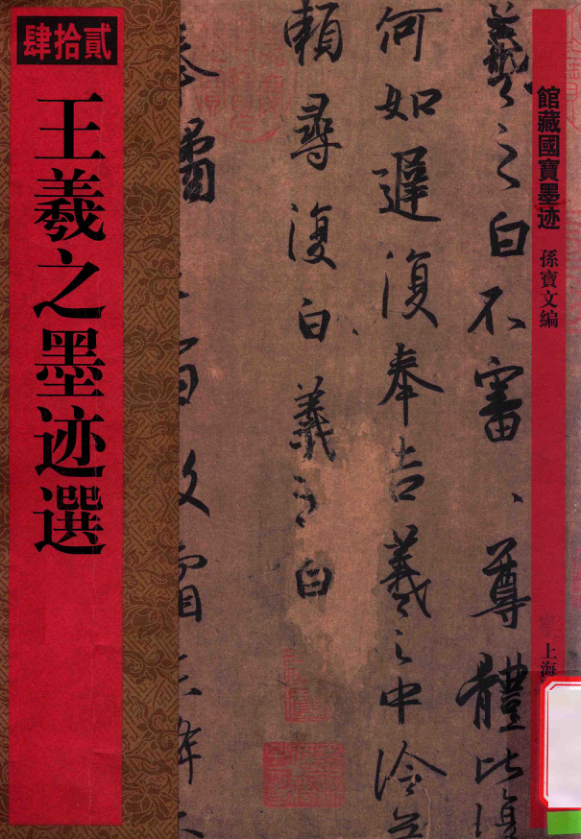 肆拾貳
王羲之墨迹選
館藏國寶墨迹
孫寶文編
上海
羲之白不審、尊體比復
何如遲復奉告羲之中冷無
賴尋復白羲之白
奉橘三百枚霜未降